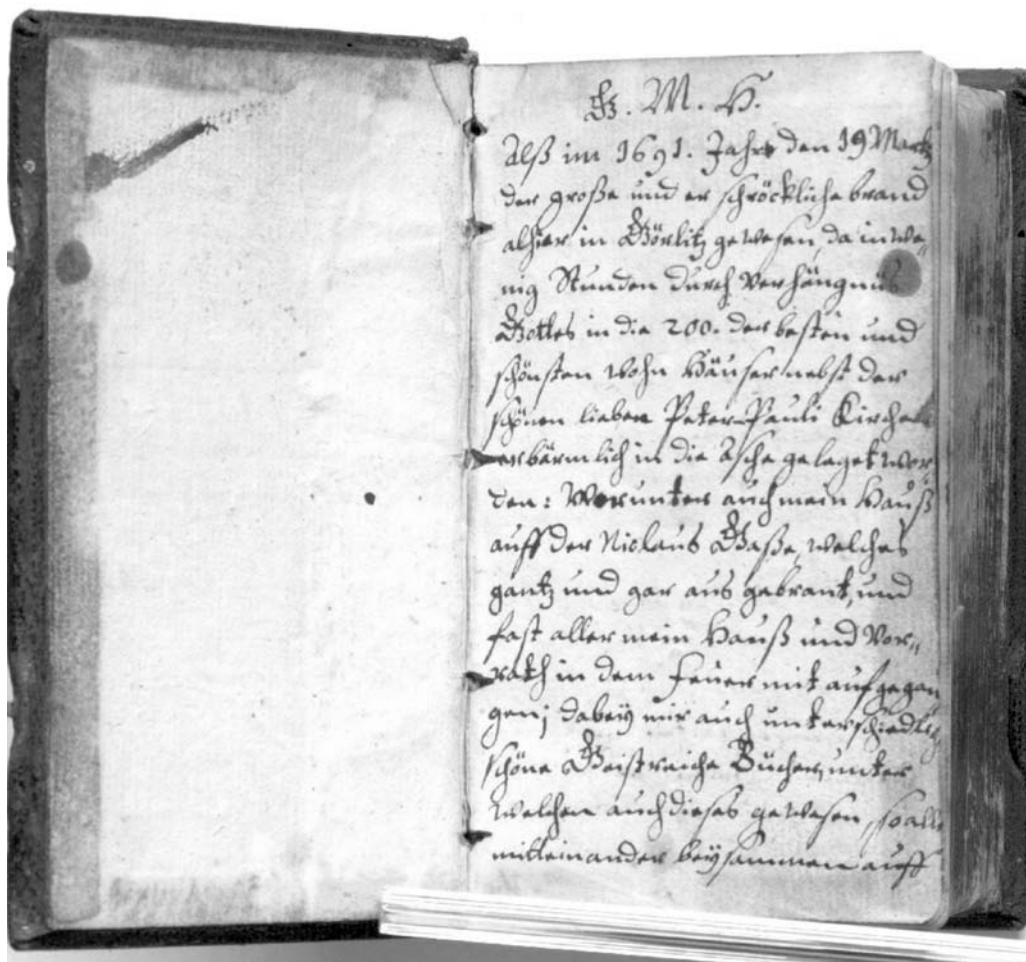 G. M. H.
Alß im 1691. Jahre den 19 Martz
der große und er schröckliche brand
alhier in Görlitz gewesen, da in we„
nig Stunden durch Verhängnüs
Gottes in die 200. der besten und
schönsten wohn Häuser nebst der
schönen lieben Peter-Pauli Kirchen
erbärmlich in die Asche geleget wor
den: Worunter auch mein Hauß
auff der Niclaus Gaße, welches
gantz und gar aus gebrant, und
fast aller mein Hauß und Vor„
rath in dem Feuer mit aufgegan
gen; dabey mir auch unterschiedlich
schöne Geistreiche Bücher, unter
welchen auch dieses gewesen, so alle
mitteinander beysammen auff